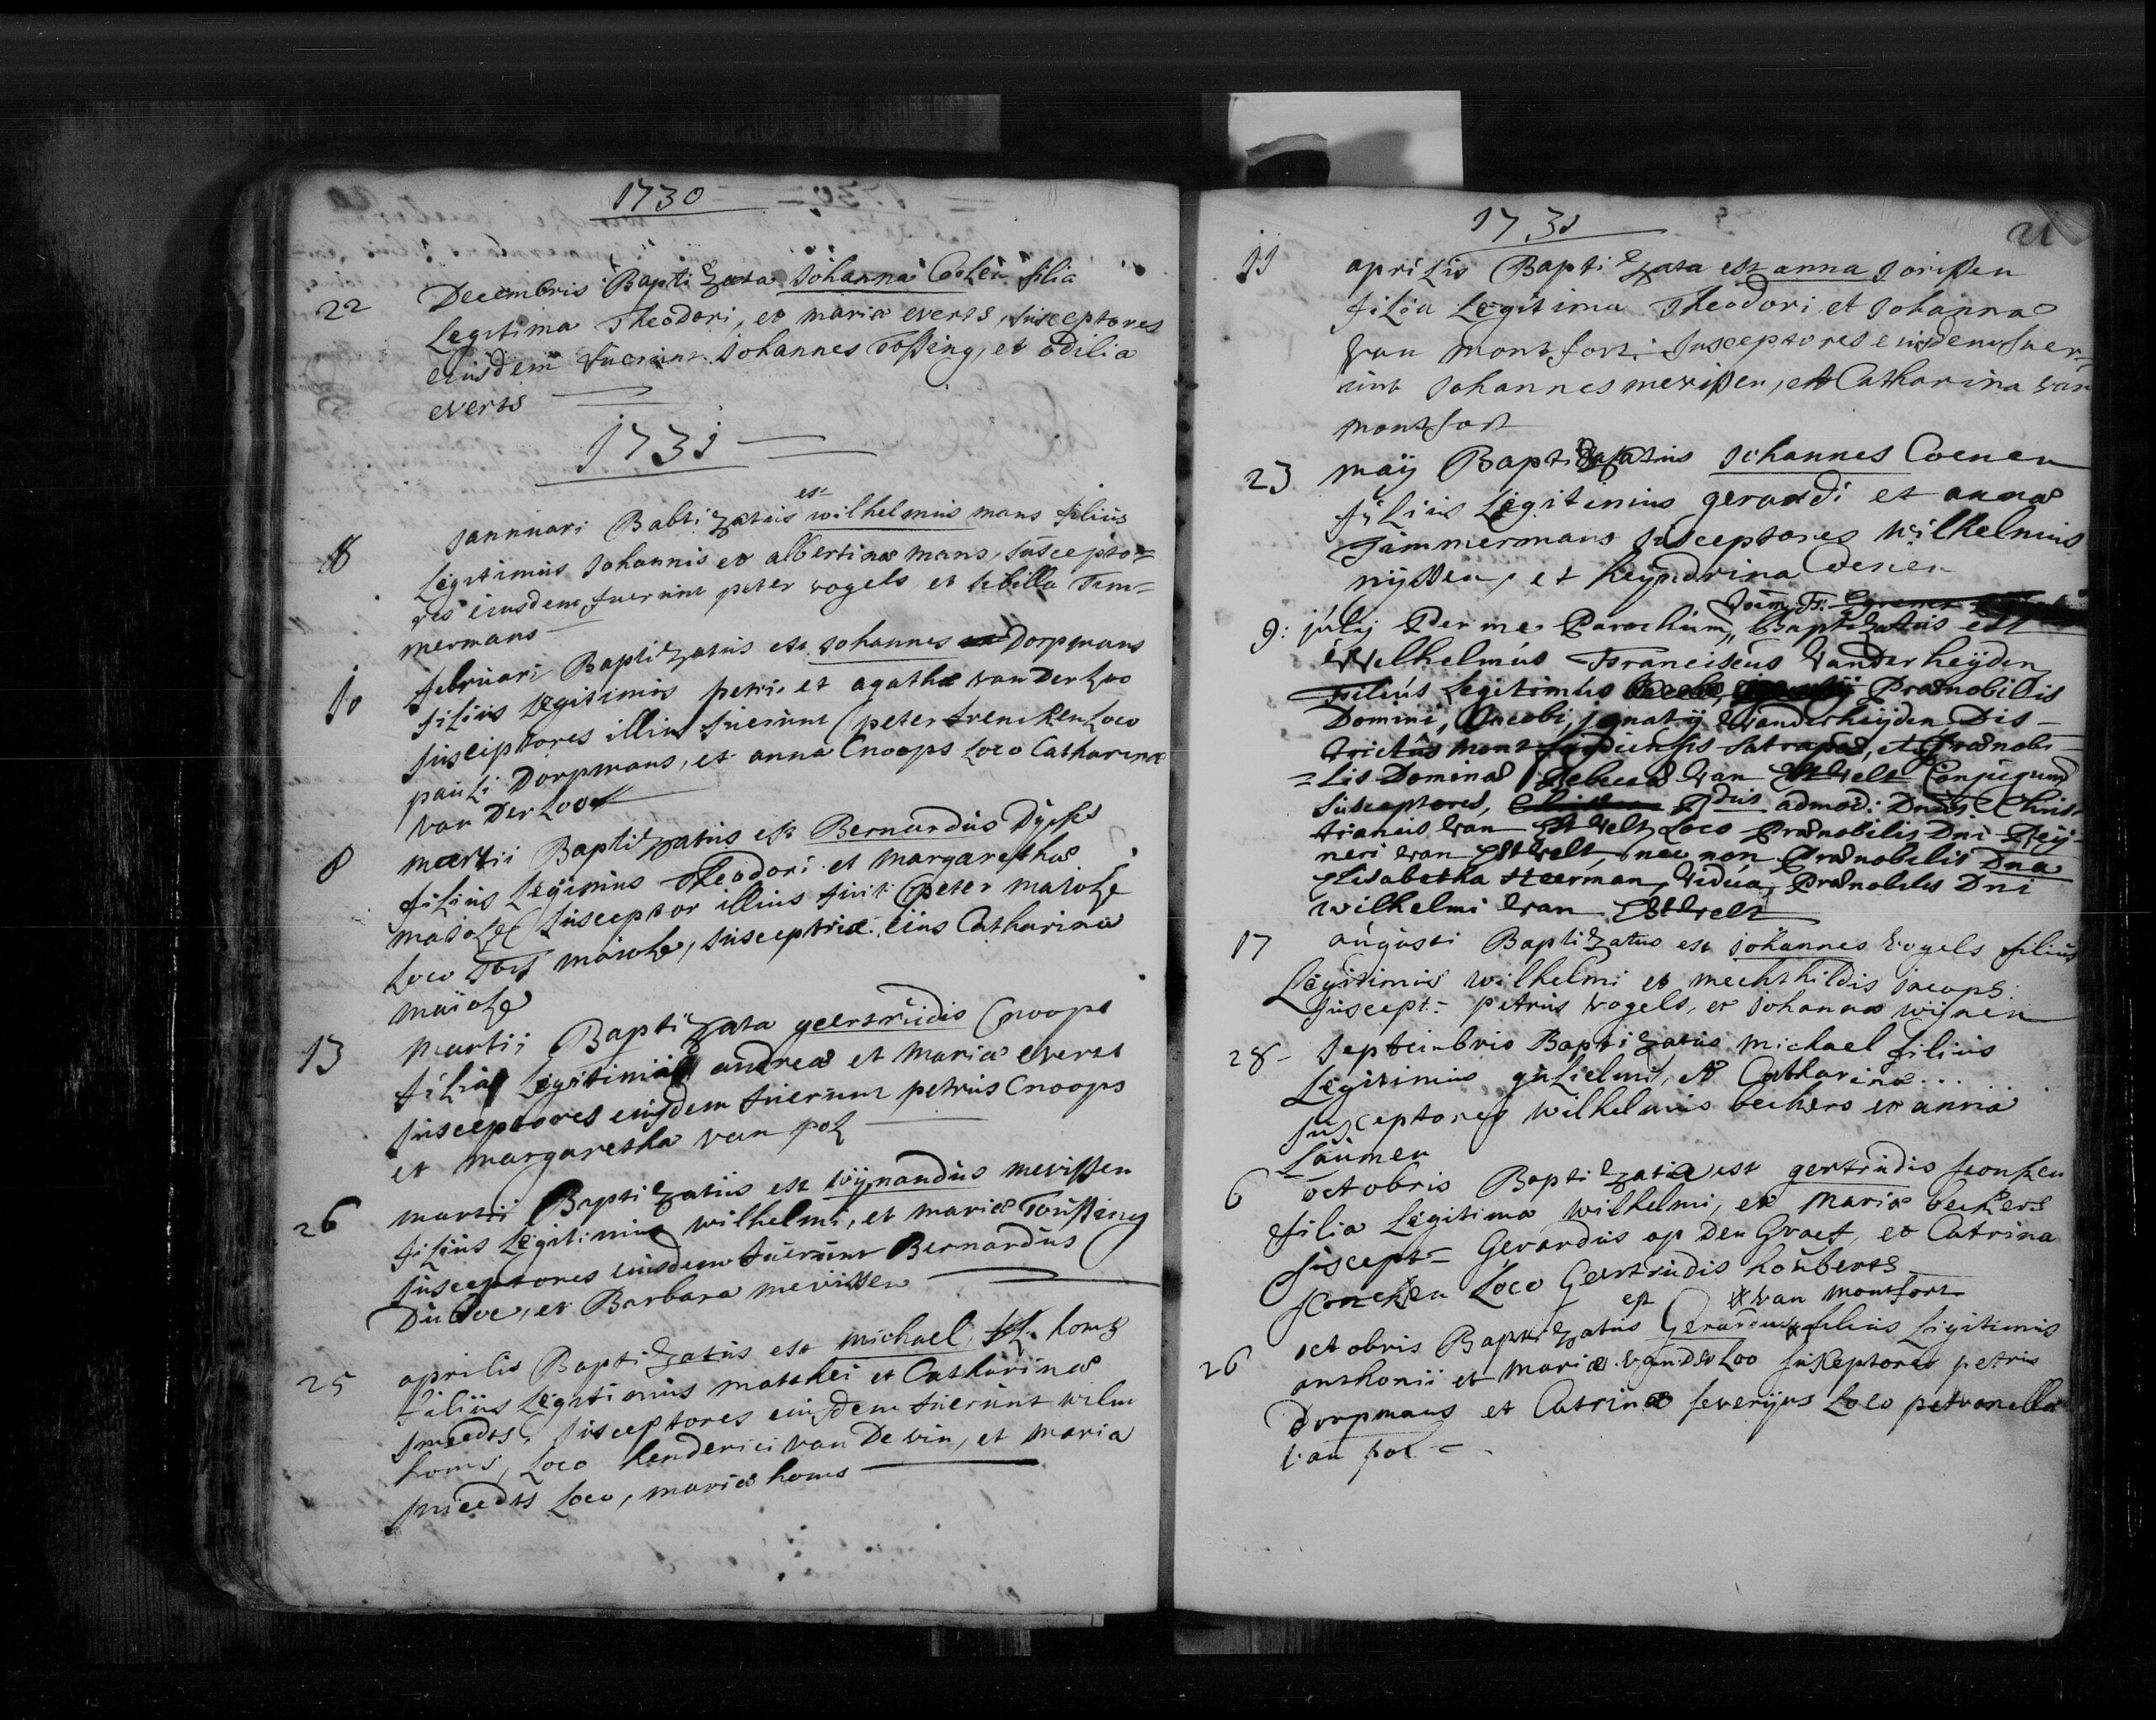 1730
22 Decembris Baptizata Johanna Cox filia
Legitima Theodori, et maria everts, susceptores
eiusdem fuerunt Johannes Tossing, et odilia
everts
1731
18 Jannuari Babtizatus est wilhelmus mans filius
Legitimus Johannis et albertinæ mans, suscepto=
res eiusdem fuerunt peter vogels et sibilla Tim-
mermans
10 februari Baptizatus est Johannes Dorpmans
filius Legitimus petri et agathæ van Der Loo
susceptores illius fuerunt peter Loco
pauli Dorpmans, et anna Cnoops Loco Catharinæ
van Der Loo
8 martii Baptizatus est Bernardus Dycks
filius Legimus Theodori et margarethæ
susceptor illius fuit peter
Loco susceptrix eius Catharina
13 martii Baptizata geertrudis Cnoops
filia Legitima andreæ et Mariæ everts
susceptores eiusdem fuerunt petrus Cnoops
et margaretha van pol
26 martii Baptizatus est wijnandus mevissen
filius Legitimus wilhelmi, et mariæ Toussing
susceptores eiusdem fuerunt Bernardus
et Barbara mevissen
25 aprilis Baptizatus est michael homs
filius Legitimus matthei et Catharinæ
smeedts, susceptores eiusdem fuerunt wilm
homs, Loco henderici van De vin, et maria
smeedts Loco, mariæ homs
1731
21
11 aprilis Baptizata est anna Jorissen
filia Legitima Theodori et Johanna
van montfort susceptores eiusdem fuer-
unt Johannes mevissen, et Catharina van
montfort
23 maij Baptizatus Johannes Coenen
filius Legitimus gerardi et annæ
Timmermans susceptores wilhelmus
nijssen, et heijndrina Coenen
Joem Fr:
9: julij Per me Parochum, Baptizatus est
Wilhelmus Franciscus vanderheijden
Filius Legitimus Prænobilis
Domini, Jacobi, ignatij vanderheijden Dis-
trictus montfortiensis satrapæ, et Prænobi-
=lis Dominæ Rebeccæ van Conjugum
susceptores, admod: Dnus Chris-
tianus van Loco Prænobilis Dni Reij-
neri van nec non Prænobilis Dna
Elisabetha Heerman, vidua Prænobilis Dni
wilhelmi van
17 augusti Baptizatus est johannes vogels filius
Legitimus wilhelmi et mechthildis jacops
suscept= petrus vogels, et johanna wijnen
28- septembris Baptizatus michael filius
Legitimus guLielmi, et Catharina . . .
susceptores wilhelmus beckers et anna
Laumen
6 octobris Baptizata est gertrudis fconken
filia Legitima wilhelmi, et Mariæ beckers
suscept= Gerardus op Den Graef, et Catrina
Loco Gertrudis houberts
est van montfort
26 octobris Baptizatus Gerardus filius Ligitimus
anthonii et mariæ vander Loo susceptores petrus
Dorpmans et Catrina severijns Loco petronella
van pol =